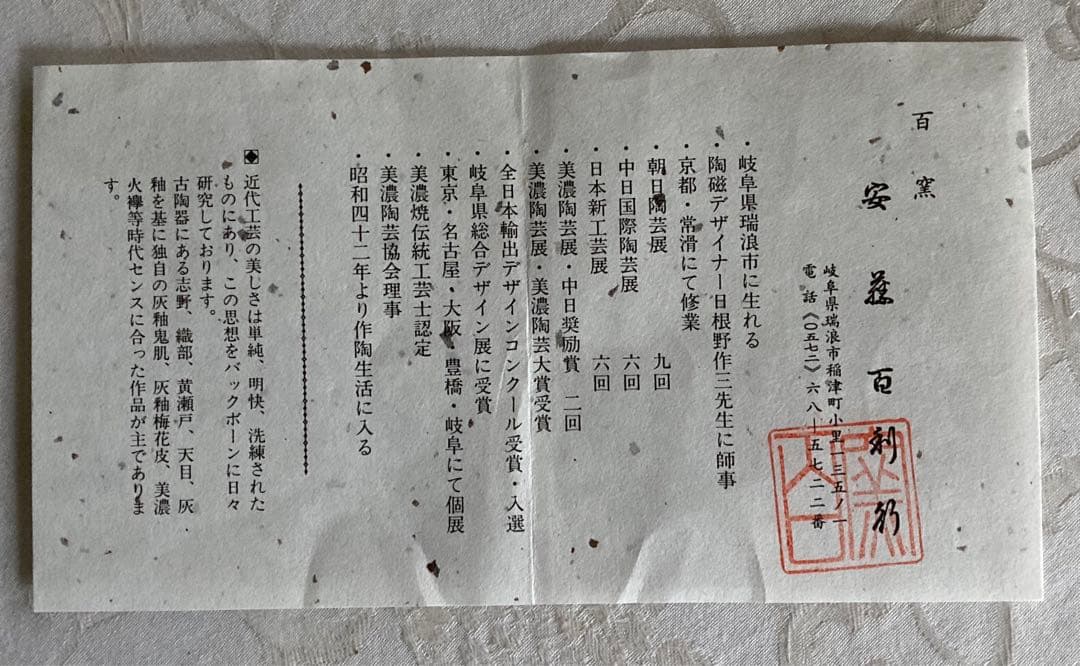 百窯
安藤百利行
岐阜県瑞浪市稲津町小里一三五ノ一
電話《〇五七二》六八―五七二二番
・岐阜県瑞浪市に生れる
・陶磁デザイナー日根野作三先生に師事
・京都・常滑にて修業
・朝日陶芸展 九回
・中日国際陶芸展 六回
・日本新工芸展 六回
・美濃陶芸展・中日奨励賞 二回
・美濃陶芸展・美濃陶芸大賞受賞
・全日本輸出デザインコンクール受賞・入選
・岐阜県総合デザイン展に受賞
・東京・名古屋・大阪・豊橋・岐阜にて個展
・美濃焼伝統工芸士認定
・美濃陶芸協会理事
・昭和四十二年より作陶生活に入る
◆近代工芸の美しさは単純、明快、洗練された
ものにあり、この思想をバックボーンに日々
研究しております。
古陶器にある志野、織部、黄瀬戸、天目、灰
釉を基に独自の灰釉鬼肌、灰釉梅花皮、美濃
火襷等時代センスに合った作品が主でありま
す。